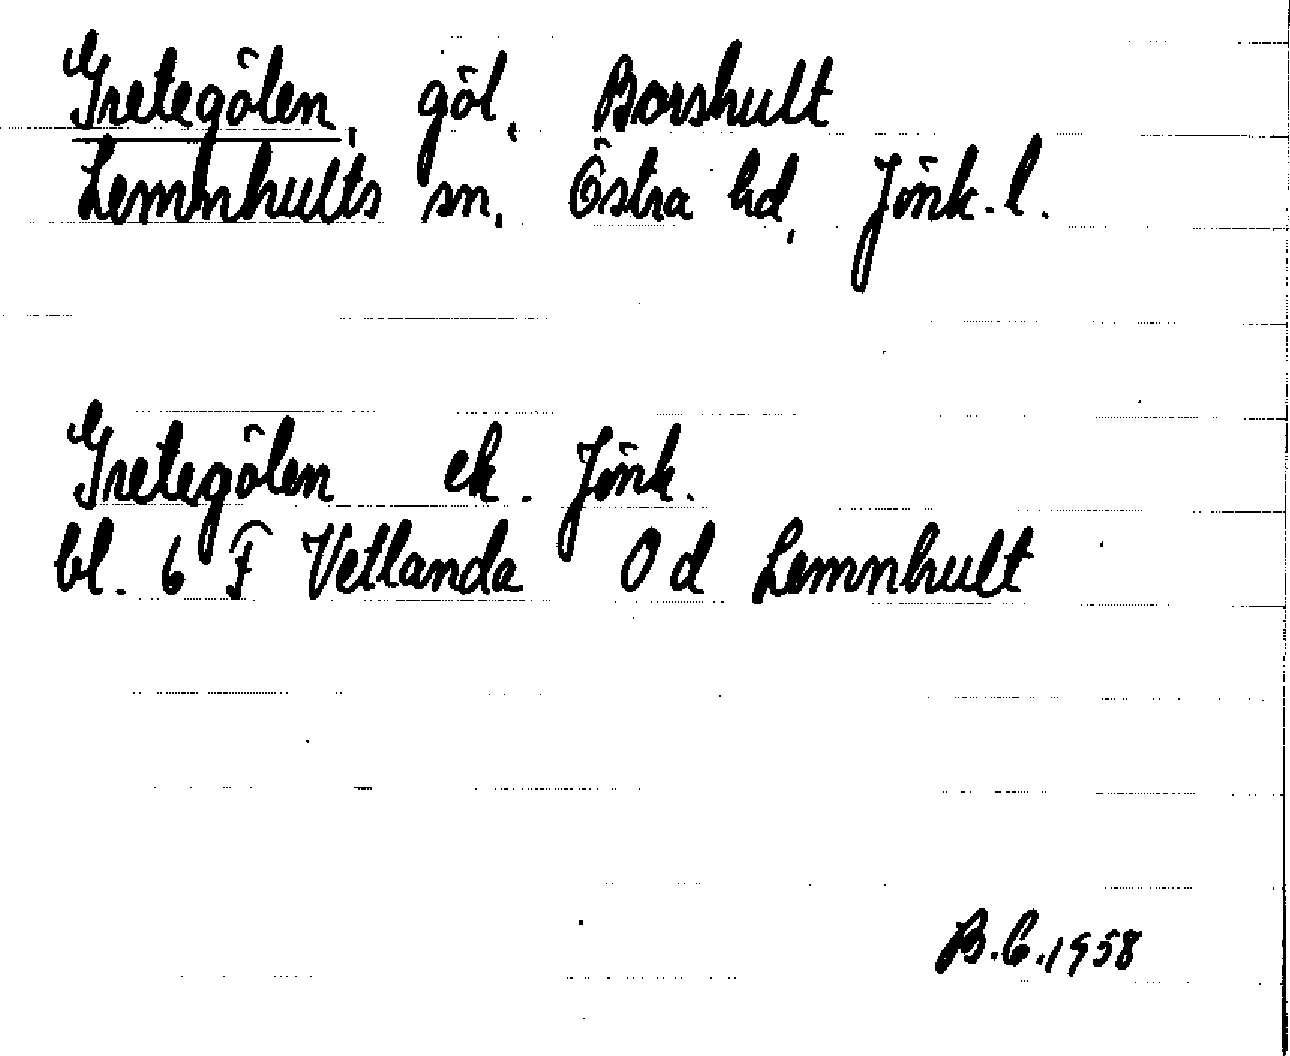 Gretegölen, göl, Borshult
Lemnhults sn, Östra hd, Jönk. l.
Gretegölen ek. Jönk.
bl. 6 F Vetlanda 0 d Lemnhult
B.C. 1958